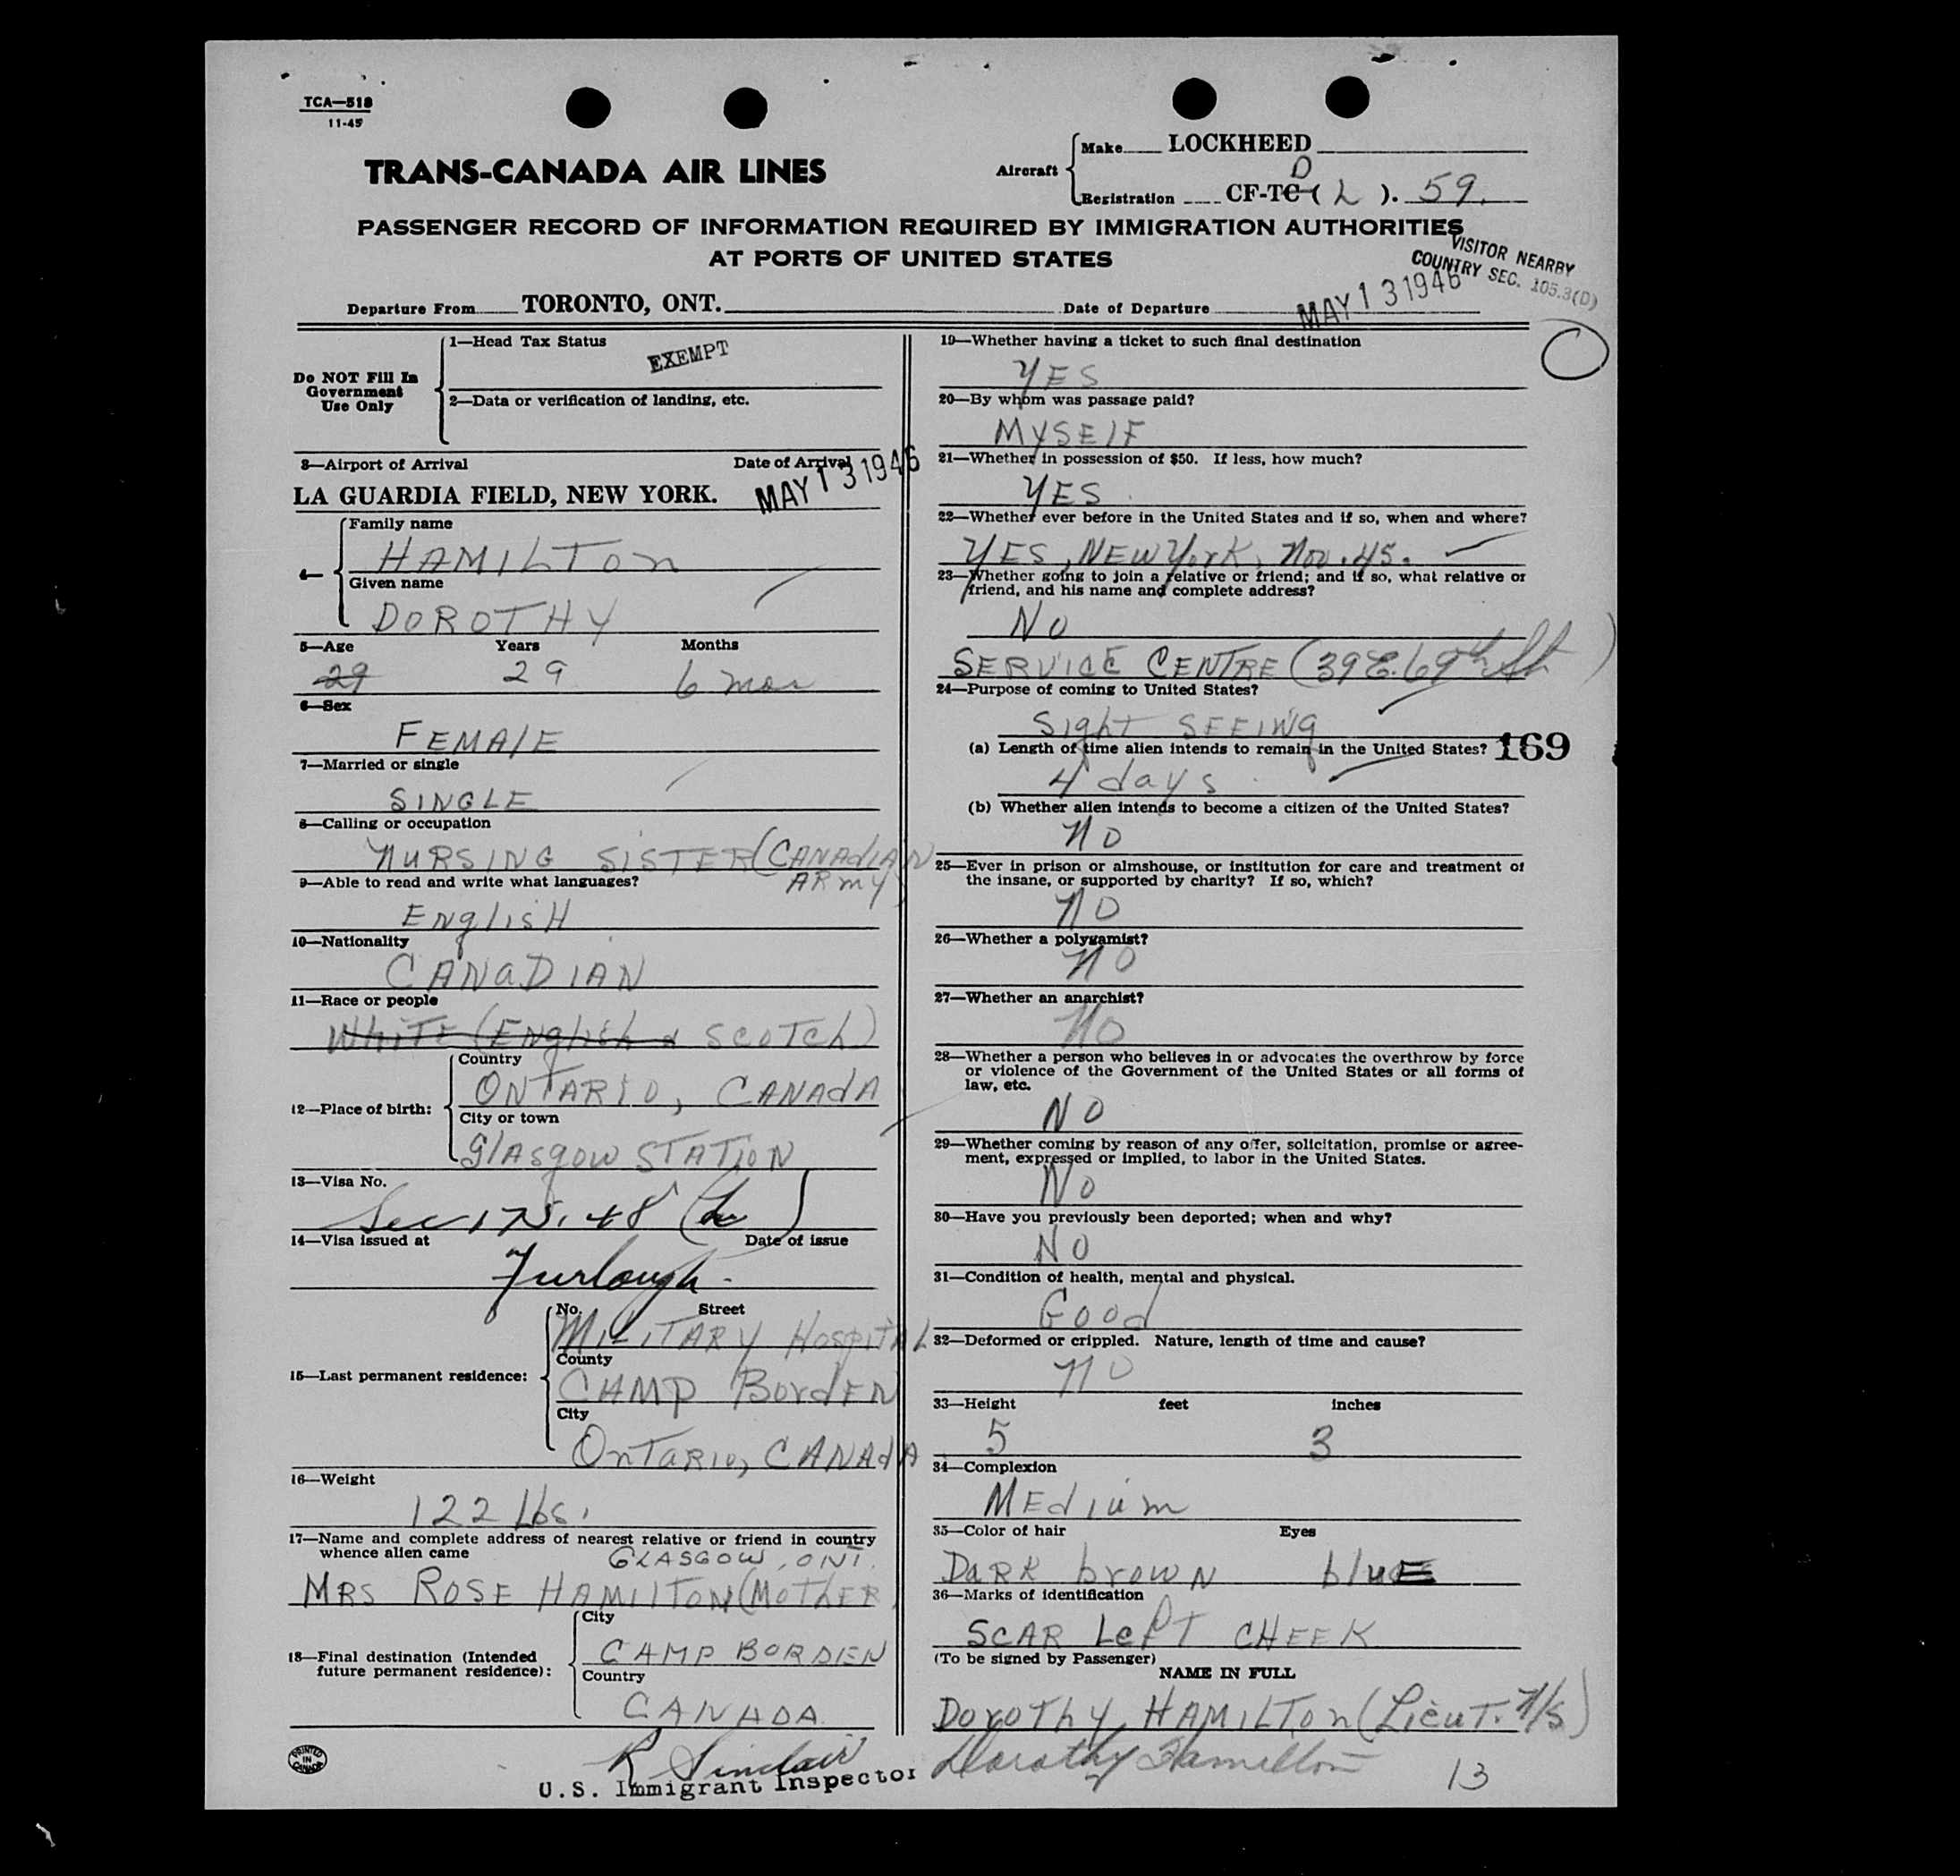 TCA—518
11-45
TRANS-CANADA AIR LINES
Aircraft
Make LOCKHEED
Registration CF-TC D (L). 59.
PASSENGER RECORD OF INFORMATION REQUIRED BY IMMIGRATION AUTHORITIES
AT PORTS OF UNITED STATES
VISITOR NEARBY
COUNTRY SEC. 105.3(D)
Departure From TORONTO, ONT. Date of Departure MAY 13 1946
Do NOT Fill In
Government
Use Only
1—Head Tax Status
EXEMPT
2—Data or verification of landing, etc.
3—Airport of Arrival Date of Arrival
LA GUARDIA FIELD, NEW YORK. MAY 13 1946
4—
Family name
HAMILTON
Given name
DOROTHY
5—Age Years Months
29 29 6 mos
6—Sex
FEMALE
7—Married or single
SINGLE
8—Calling or occupation
NURSING SISTER (CANADIAN
ARMY)
9—Able to read and write what languages?
ENglisH
10—Nationality
CANADIAN
11—Race or people
WHITE (English & SCOTCh)
12—Place of birth:
Country
ONTARIO, CANADA
City or town
GlASgow STATION
13—Visa No.
14—Visa issued at Date of issue
Furlough.
15—Last permanent residence:
No. Street
MILITARY HOSPITAL
County
CAMP BordEN
City
OnTARIO, CANAdA
16—Weight
122 Lbs.
17—Name and complete address of nearest relative or friend in country
whence alien came
GLASGOW, ONT.
MRS ROSE HAMILTON (MOTHER
18—Final destination (Intended
future permanent residence):
City
CAMP BORDEN
Country
CANADA
R Sinclair
U.S. Immigrant Inspector
PRINTED
IN
CANADA
19—Whether having a ticket to such final destination
YES
20—By whom was passage paid?
MYSElF
21—Whether in possession of $50. If less, how much?
YES
22—Whether ever before in the United States and if so, when and where?
YES, NEW York, Nov. 45.
23—Whether going to join a relative or friend; and if so, what relative or
friend, and his name and complete address?
No
SERVICE CENTRE (39 E. 69th St)
24—Purpose of coming to United States?
Sight SEEING
(a) Length of time alien intends to remain in the United States? 169
4 days
(b) Whether alien intends to become a citizen of the United States?
NO
25—Ever in prison or almshouse, or institution for care and treatment of
the insane, or supported by charity? If so, which?
NO
26—Whether a polygamist?
NO
27—Whether an anarchist?
NO
28—Whether a person who believes in or advocates the overthrow by force
or violence of the Government of the United States or all forms of
law, etc.
NO
29—Whether coming by reason of any offer, solicitation, promise or agree-
ment, expressed or implied, to labor in the United States.
No
30—Have you previously been deported; when and why?
NO
31—Condition of health, mental and physical.
Good
32—Deformed or crippled. Nature, length of time and cause?
NO
33—Height feet inches
5 3
34—Complexion
MEdium
35—Color of hair Eyes
DARK brown bluE
36—Marks of identification
SCAR LefT CHEEK
(To be signed by Passenger)
NAME IN FULL
DoroThy HAMILTON (LieuT. N/S)
Dorothy Hamilton 13